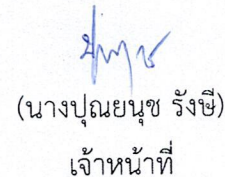 (นางปุณยนุช รังษี)
เจ้าหน้าที่